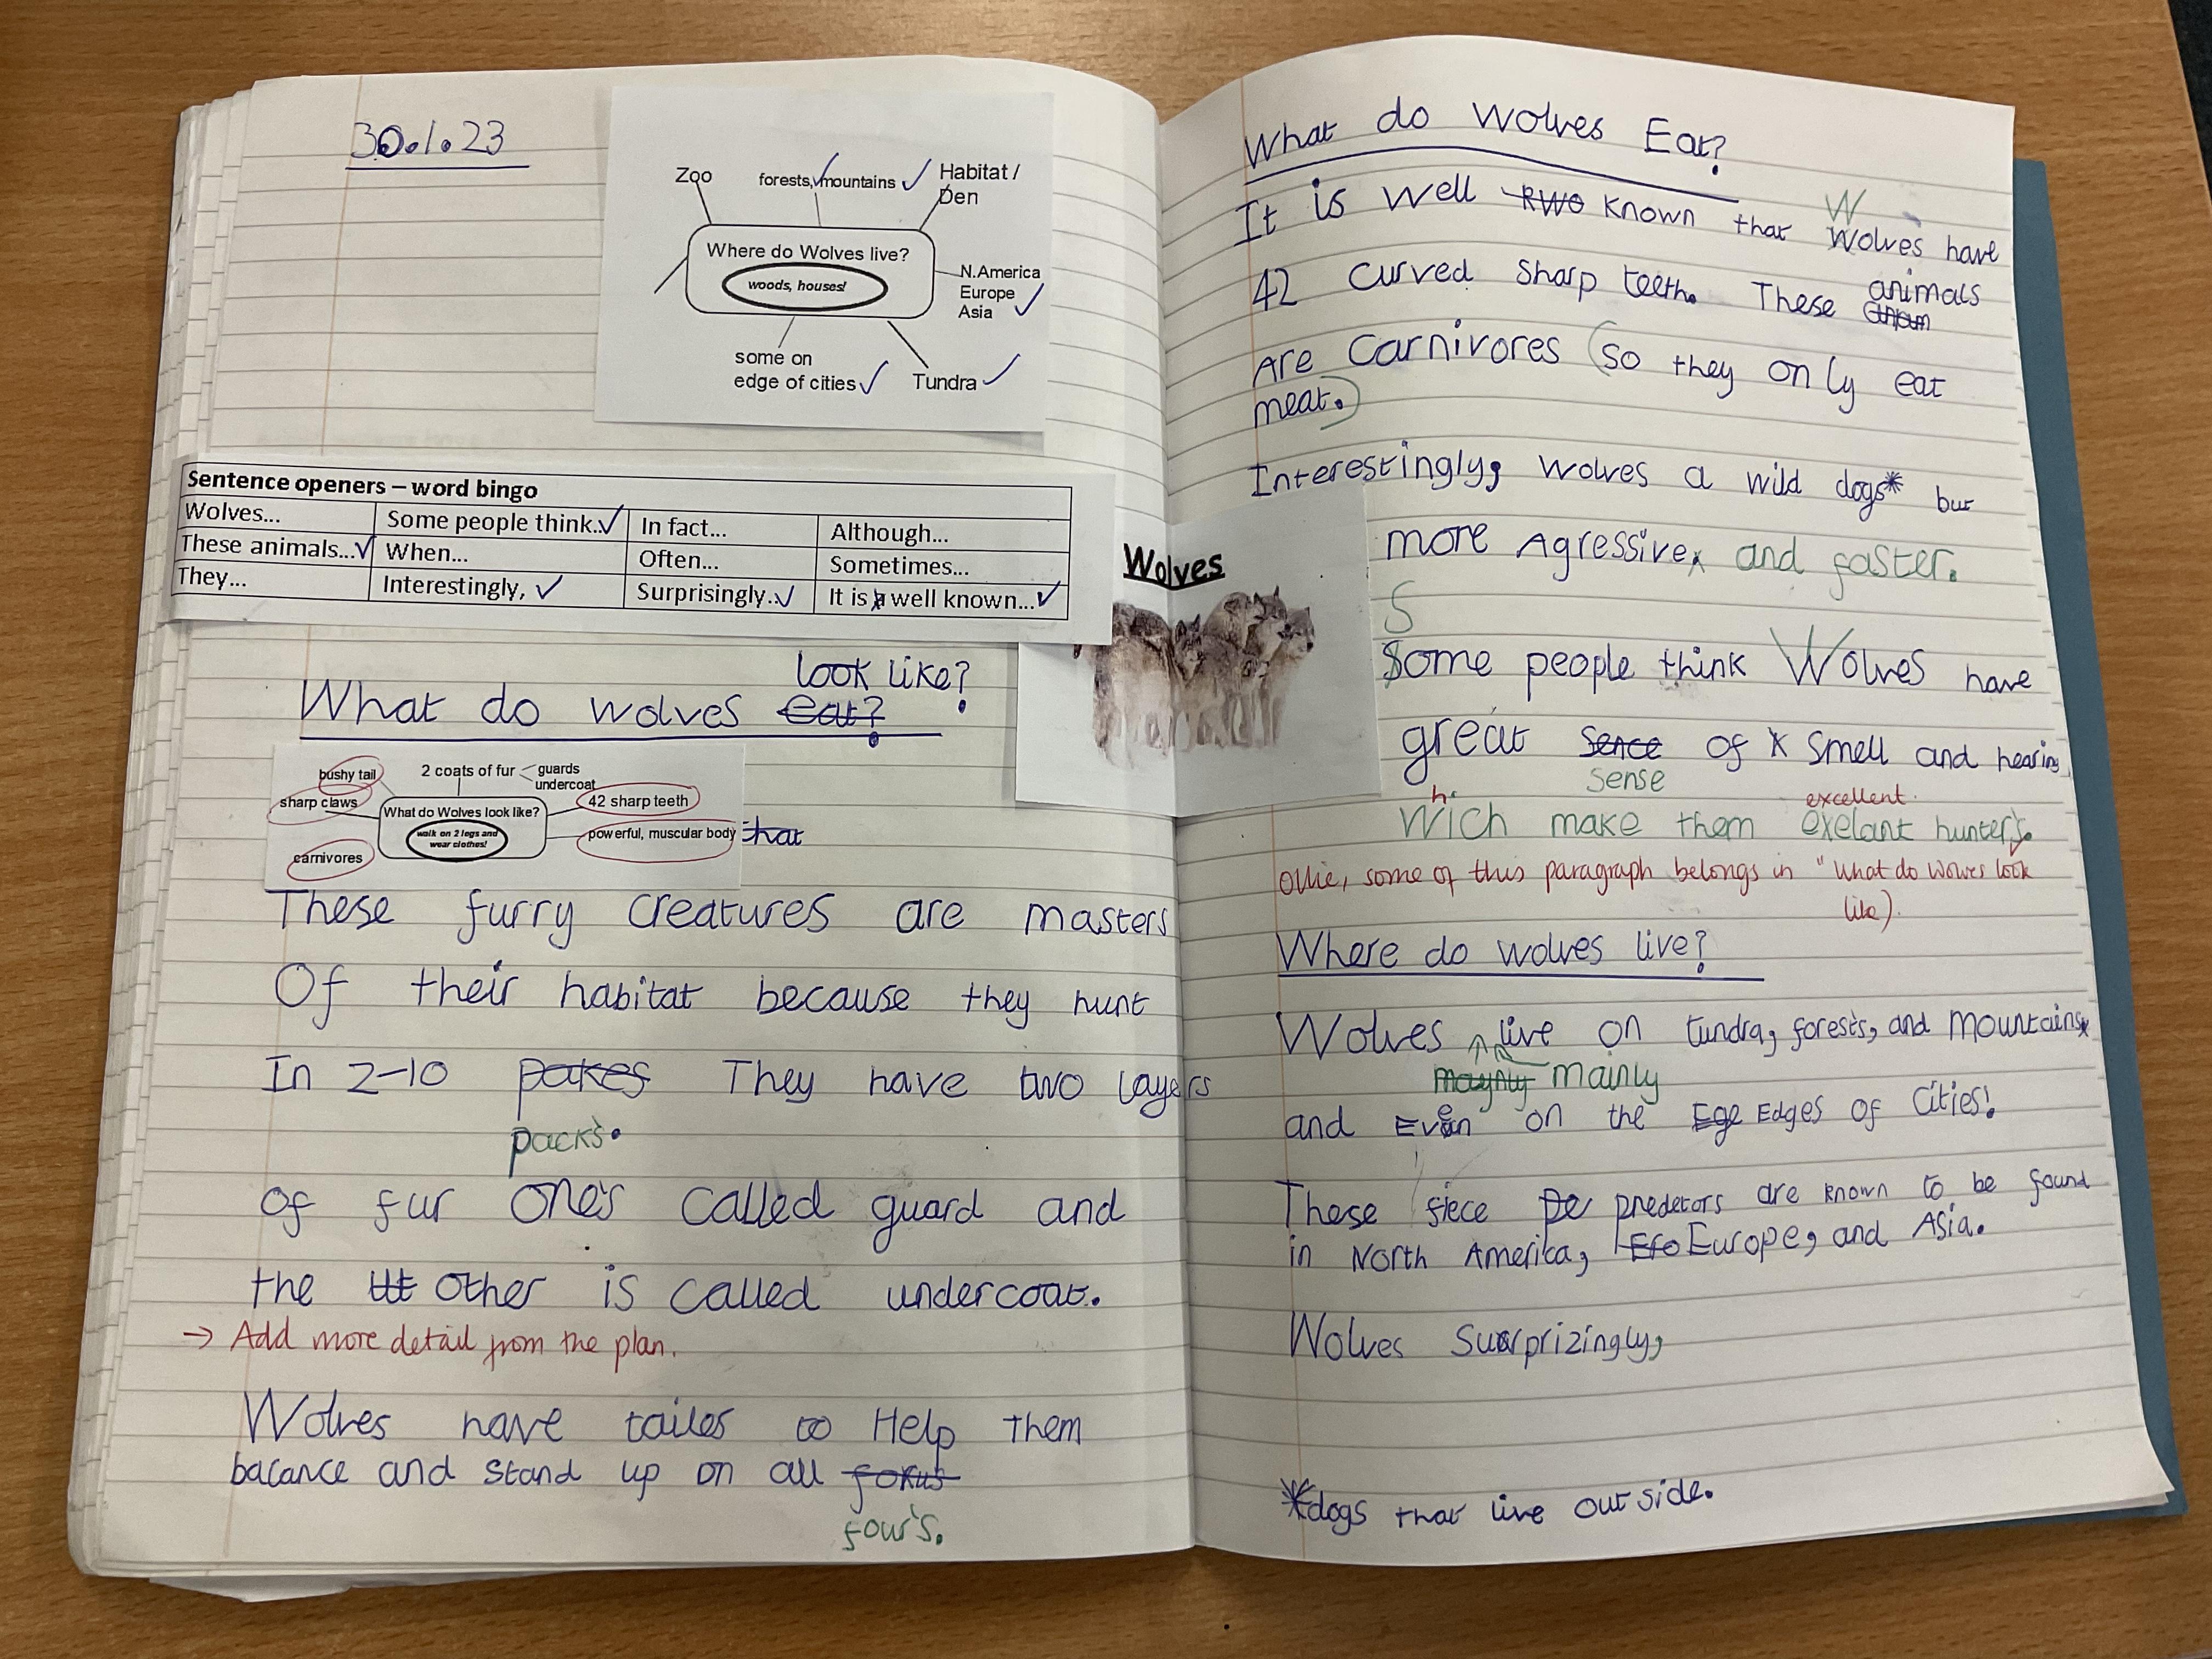 30.1.23
Zoo
forests, mountains
Habitat /
Den
Where do Wolves live?
woods, houses!
N.America
Europe
Asia
some on
edge of cities
Tundra
Sentence openers – word bingo
Wolves... Some people think.. In fact... Although...
These animals... When... Often... Sometimes...
They... Interestingly, Surprisingly.. It is a well known...
look like?
What do wolves eat?
bushy tail
2 coats of fur
guards
undercoat
sharp claws
What do Wolves look like?
42 sharp teeth
walk on 2 legs and
wear clothes!
powerful, muscular body
that
carnivores
These furry creatures are masters
Of their habitat because they hunt
In 2-10 pakes They have two layers
packs.
of fur one's called guard and
the other is called undercoat.
→ Add more detail from the plan.
Wolves have tailes to Help Them
balance and stand up on all fokus
four's.
Wolves
What do wolves Eat?
It is well known that Wolves have
W
42 curved sharp teeth. These animals
Are Carnivores (so they only eat
meat.)
Interestingly, wolves a wild dogs* but
more Agressive, and faster.
S
Some people think Wolves have
great sence of smell and hearing
sense
h excellent
Wich make them exelant hunters.
Ollie, some of this paragraph belongs in "What do wolves look
like).
Where do wolves live?
Wolves live on tundra, forests, and mountains
maynly mainly
and Even on the Ege Edges of Cities!
These fiece Pe predetors are known to be found
in North America, Ero Europe, and Asia.
Wolves Suurprizingly,
*dogs that live outside.